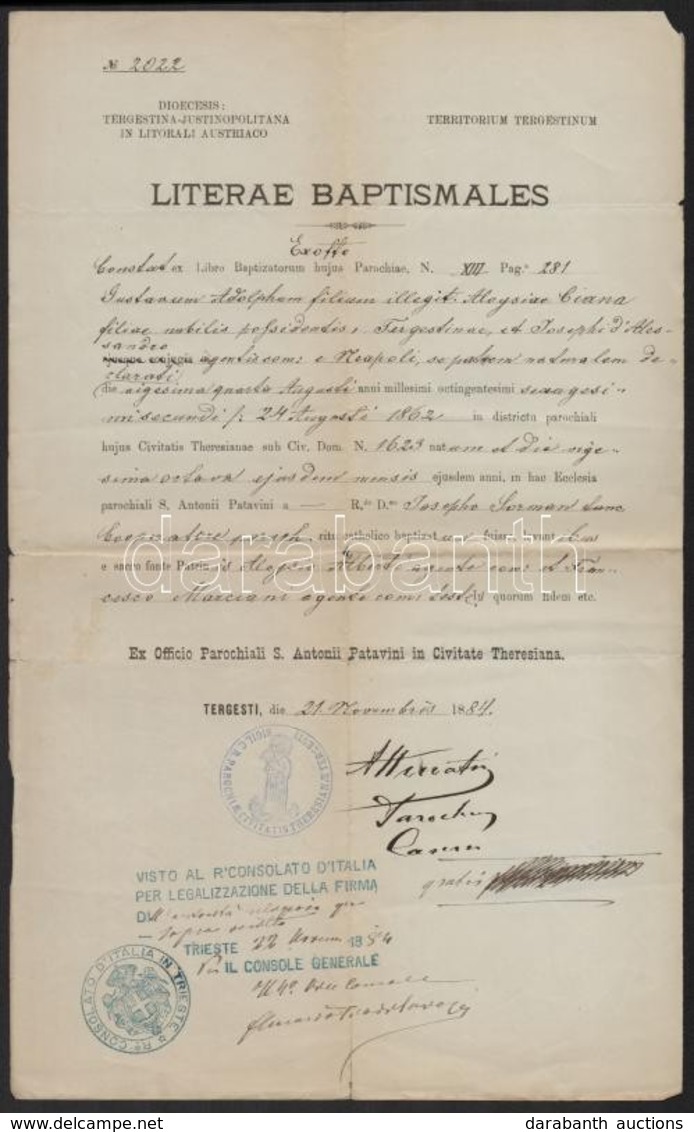 № 2022
DIOECESIS:
TERGESTINA-JUSTINOPOLITANA
IN LITORALI AUSTRIACO
TERRITORIUM TERGESTINUM
LITERAE BAPTISMALES
Ex offo
Constat ex Libro Baptizatorum hujus Parochiae, N. XIII Pag.ª 281
Gustavum Adolphum filium illegit. Aloysiae Ciana
filiae nobilis possidentis, Tergestinae, et Josephi d'Ales-
sandro
agentis com: e Neapoli, se patrem naturalem de-
clarati
die vigesima quarta Augusti anni millesimi octingentesimi sexagesi-
mi secundi /: 24 Augusti 1862 in districtu parochiali
hujus Civitatis Theresianae sub Civ. Dom. N. 1623 natum et die vige-
sima octava ejusdem mensis ejusdem anni, in hac Ecclesia
parochiali S. Antonii Patavini a — R.do D.no Josepho Surman tunc
Cooperatore paroch. ritu catholico baptizatum fuisse, levantibus
e sacro fonte Patrinis Aloysio Alberti agente com: et Fran-
cesco Marciani agente com: testis quorum fidem etc.
Ex Officio Parochiali S. Antonii Patavini in Civitate Theresiana.
TERGESTI, die 21 Novembris 1884.
SIGIL. C. R. PAROCHIÆ CIVITATIS THERESIANÆ TERGESTI
Parochus
gratis
VISTO AL Rº CONSOLATO D'ITALIA
PER LEGALIZZAZIONE DELLA FIRMA
D
sopra
TRIESTE 22 Novem 1884
IL CONSOLE GENERALE
Rº CONSOLATO D'ITALIA IN TRIESTE
darabanth
www.darabanth.com
darabanth auctions